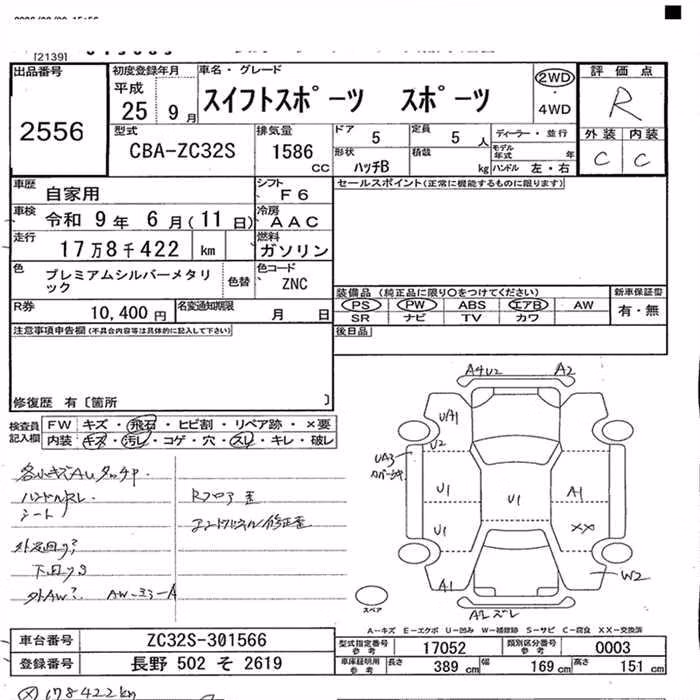 [2139]
出品番号
2556
初度登録年月
平成
25 9月
車名・グレード
スイフトスポーツ スポーツ
2WD
4WD
評価点
R
外装 内装
C C
型式
CBA-ZC32S
排気量
1586
CC
ドア
5
定員
5 人
ディーラー・並行
形状
ハッチB
積載
kg
モデル年式
年
ハンドル 左・右
車歴
自家用
シフト
F6
セールスポイント(正常に機能するものに限ります)
車検
令和 9年 6月(11日)
冷房
AAC
走行
17万8千422 km
燃料
ガソリン
色
プレミアムシルバーメタリ
ック
色替
色コード
ZNC
装備品 (純正品に限り〇をつけてください)
新車保証書
PS PW ABS エアB AW
有・無
SR ナビ TV カワ
R券
10,400 円
名変通知期限
月 日
後日品
注意事項申告欄(不具合内容等は具体的に記入して下さい)
修復歴 有〔箇所 〕
検査員
記入欄
FW キズ・飛石・ヒビ割・リペア跡・×要
内装 キズ・汚レ・コゲ・穴・スレ・キレ・破レ
ハンドルスレ
シート
Rフロア歪
A4U2 A2
UA1
U2
UA3
U1 U1 A1
U1 XX
A1 W2
スペア
A2ズレ
A-キズ E-エクボ U-凹み W-補修跡 S-サビ C-腐食 XX-交換済
車台番号
ZC32S-301566
型式指定番号
参考
17052
類別区分番号
参考
0003
登録番号
長野 502 そ 2619
車庫証明用
参考
長さ 389 cm
幅 169 cm
高さ 151 cm
178422km